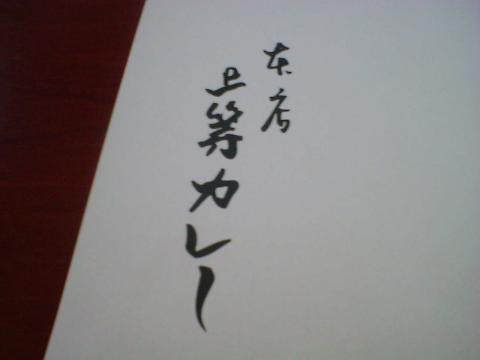 本店
上等カレー